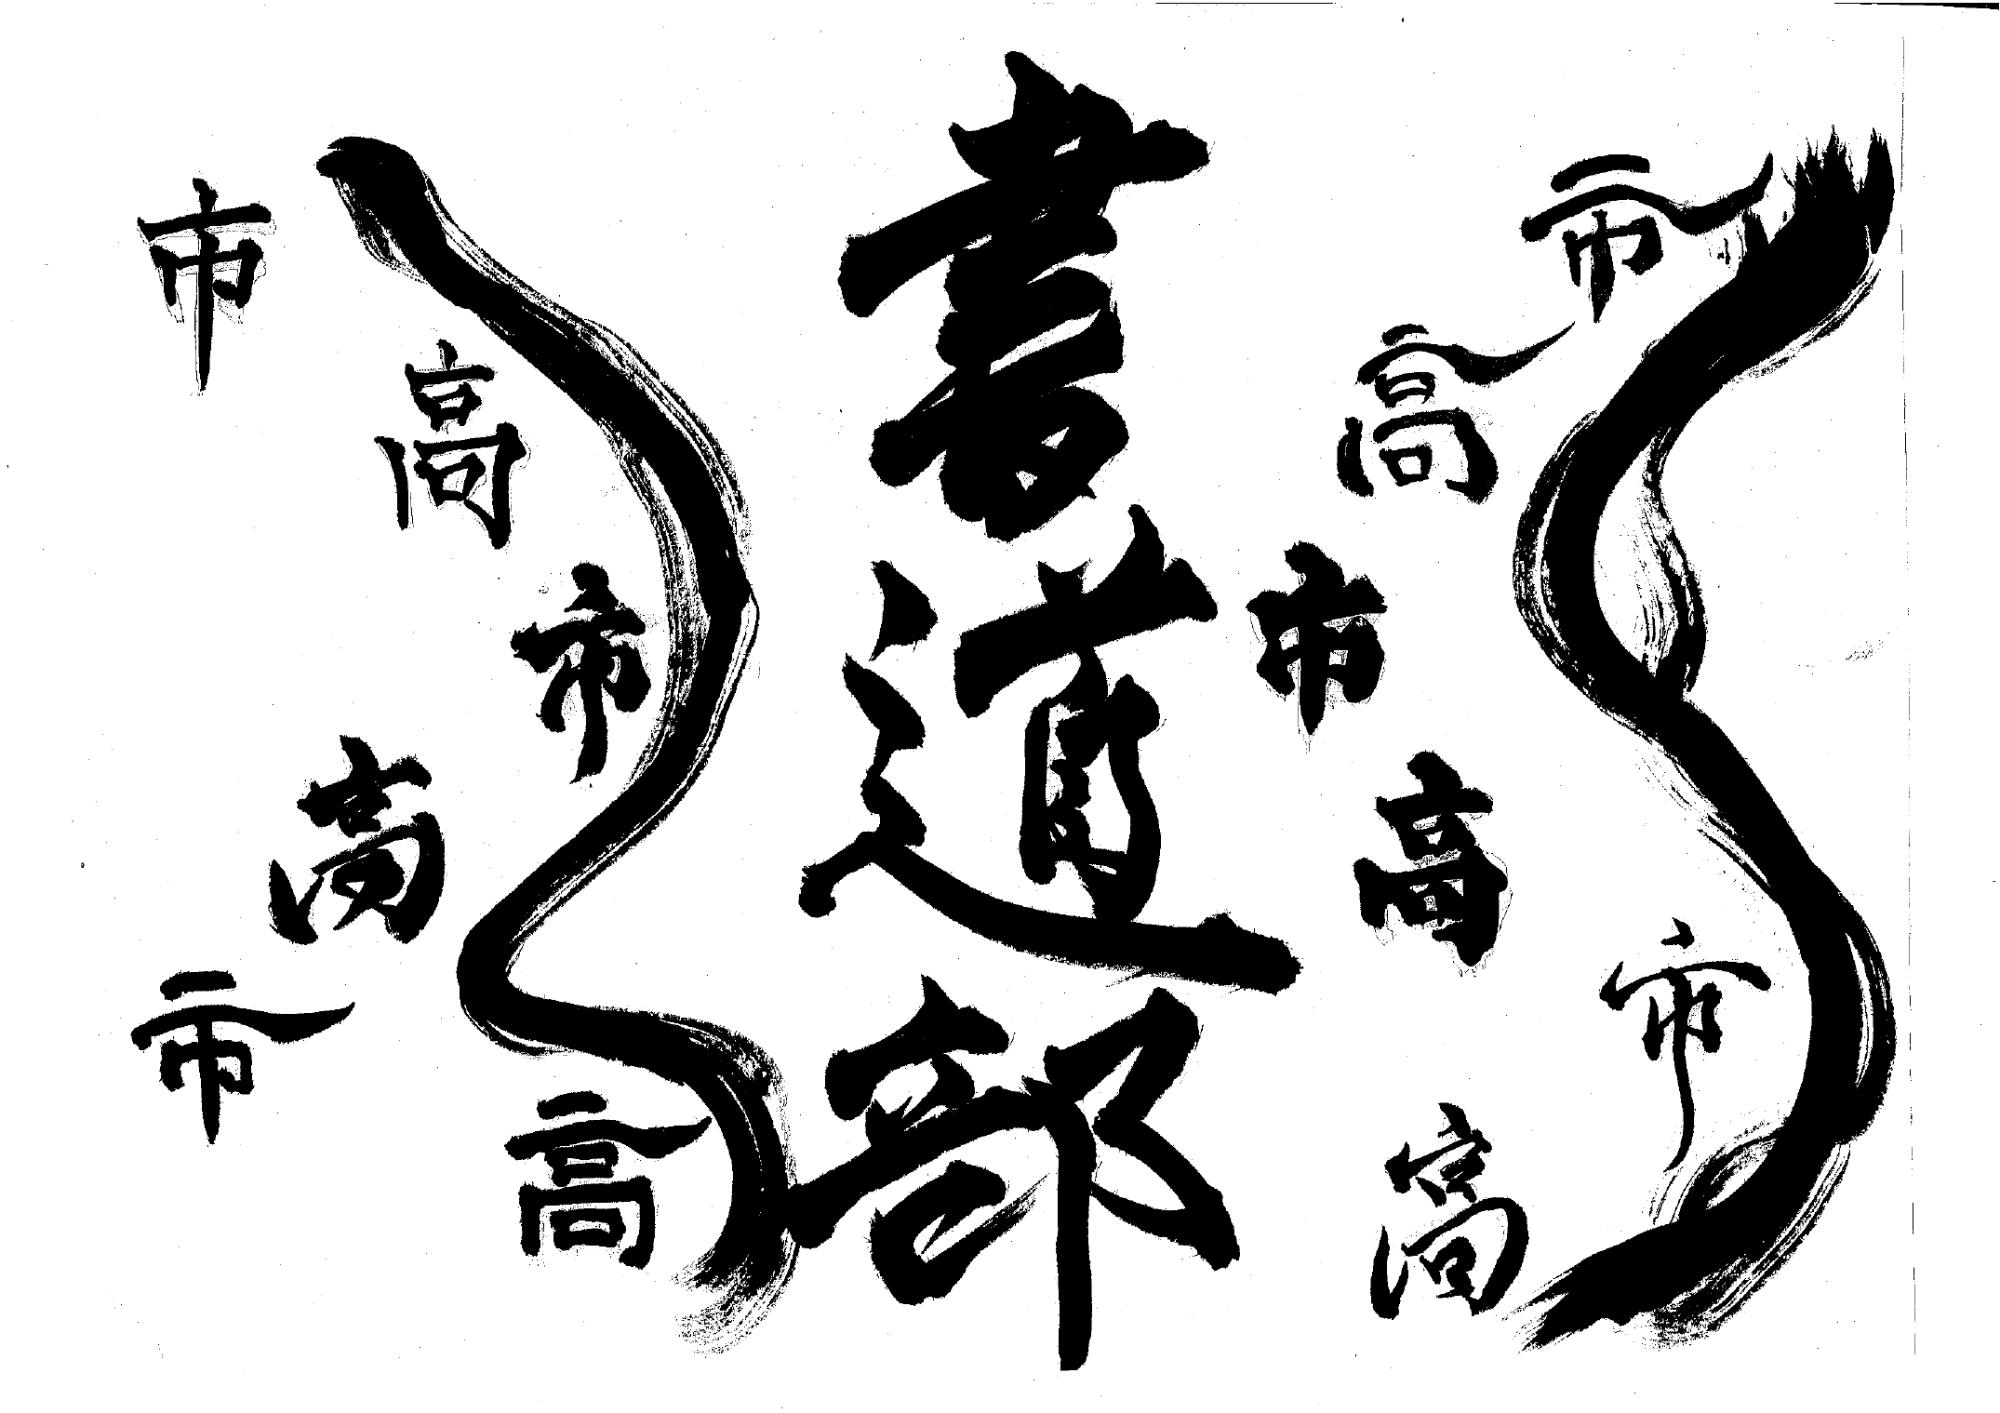 市高市高市高
書道部
市高市高市高